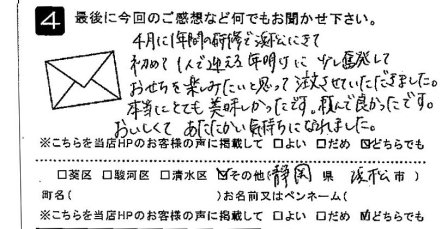 4 最後に今回のご感想など何でもお聞かせ下さい。
4月に1年間の研修で浜松にきて
初めて1人で迎える年明けに 少し奮発して
おせちを楽しみたいと思って注文させていただきました。
本当にとても美味しかったです。頼んで良かったです。
おいしくて あたたかい気持ちになれました。
※こちらを当店HPのお客様の声に掲載して □よい □だめ ☑どちらでも
□葵区 □駿河区 □清水区 ☑その他(静岡 県 浜松 市)
町名( )お名前又はペンネーム(
※こちらを当店HPのお客様の声に掲載して □よい □だめ ☑どちらでも